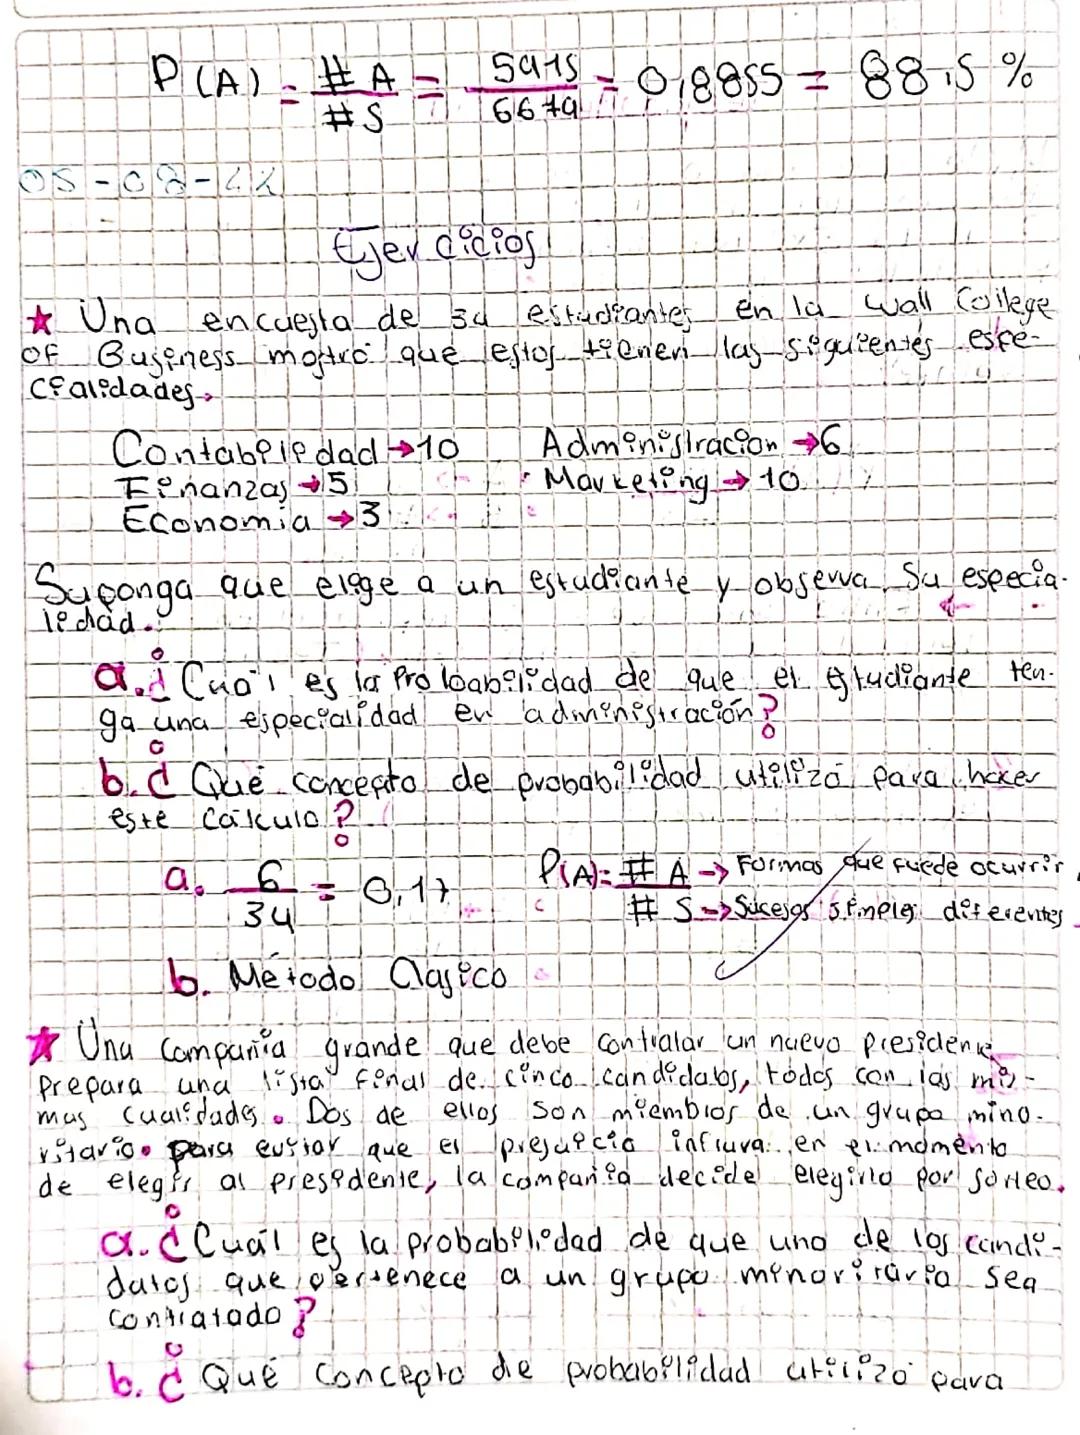 P(A) = # A / # S = 5915 / 6679 = 0,8855 = 88,5 %
05-08-22
Ejercicios
★ Una encuesta de 34 estudiantes en la Wall College
OF Business mostró que estos tienen las siguientes espe-
cialidades.
Contabilidad → 10 Administracion → 6
Finanzas → 5 Marketing → 10
Economia → 3
Suponga que elige a un estudiante y observa su especia-
lidad.
a. ¿Cuál es la Probabilidad de que el estudiante ten-
ga una especialidad en administración?
b. ¿Qué concepto de probabilidad utilizó para hacer
este cálculo?
a. 6 / 34 = 0,17 P(A) = # A → Formas que puede ocurrir
# S → Sucesos simples diferentes
b. Método Clasico
★ Una compañia grande que debe contratar un nuevo presidente
prepara una lista final de cinco candidatos, todos con las mis-
mas cualidades. Dos de ellos son miembros de un grupo mino-
ritario. para evitar que el prejuicio influya en el momento
de elegir al presidente, la compañia decide elegirlo por sorteo.
a. ¿Cuál es la probabilidad de que uno de los candi-
datos que pertenece a un grupo minoritario sea
contratado?
b. ¿Qué concepto de probabilidad utilizó para